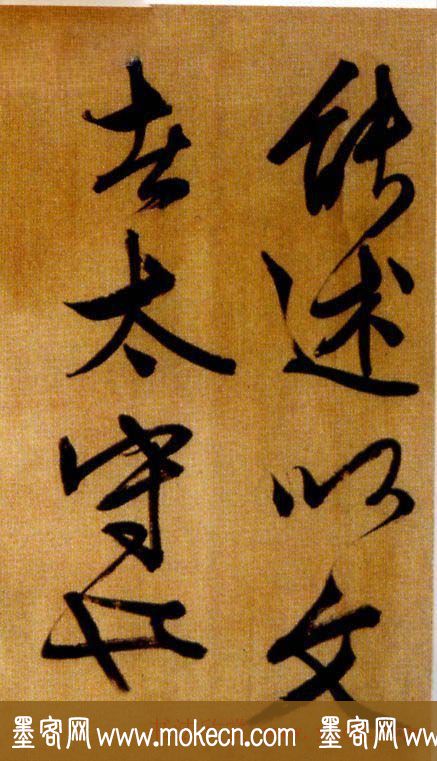 能述以文
者太守也
墨客网 www.mokecn.com 墨客网 www.